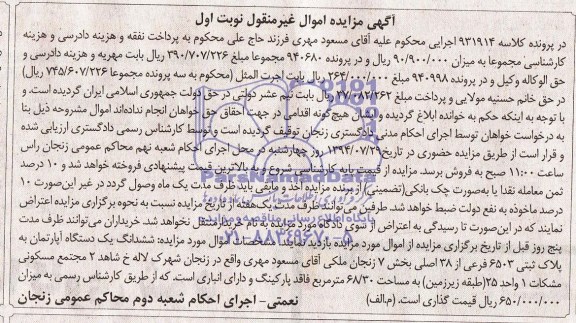 آگهی مزایده اموال غیرمنقول نوبت اول
در پرونده کلاسه ۹۳۱۹۱۴ اجرایی محکوم علیه آقای مسعود مهری فرزند حاج علی محکوم به پرداخت نفقه و هزینه دادرسی و هزینه
کارشناسی مجموعا به میزان ۹۰/۹۰۰/۰۰۰ ریال و در پرونده ۹۴۰۶۸۰ مجموعا مبلغ ۳۹۰/۷۰۷/۲۲۶ ریال بابت مهریه و هزینه دادرسی و
حق الوکاله وکیل و در پرونده ۹۴۰۹۹۸ مبلغ ۲۶۴/۰۰۰/۰۰۰ ریال بابت اجرت المثل (محکوم به سه پرونده مجموعا ۷۴۵/۶۰۷/۲۲۶ ریال)
در حق خانم حسنیه مولایی و پرداخت مبلغ ۲۷/۰۸۲/۲۶۲ ریال بابت نیم عشر دولتی در حق دولت جمهوری اسلامی ایران گردیده است. و
با توجه به اینکه حکم به خوانده ابلاغ گردیده و ایشان هیچ گونه اقدامی در جهت احقاق حق خواهان انجام نداده‌اند اموال مشروحه ذیل بنا
به درخواست خواهان توسط اجرای احکام مدنی دادگستری زنجان توقیف گردیده است و توسط کارشناس رسمی دادگستری ارزیابی شده
و قرار است از طریق مزایده حضوری در تاریخ ۱۳۹۴/۰۷/۲۹ روز چهارشنبه در محل اجرای احکام شعبه نهم محاکم عمومی زنجان راس
ساعت ۱۱:۰۰ صبح به فروش برسد. مزایده از قیمت پایه کارشناسی شروع و به بالاترین قیمت پیشنهادی فروخته خواهد شد و ۱۰ درصد
ثمن معامله نقدا یا به‌صورت چک بانکی(تضمینی) از برنده مزایده اخذ و مابقی باید ظرف مدت یک ماه وصول گردد در غیر این‌صورت ۱۰
درصد ماخوذه به نفع دولت ضبط خواهد شد. طرفین می‌توانند ظرف مدت یک‌هفته از تاریخ مزایده نسبت به نحوه برگزاری مزایده اعتراض
نمایند که در این‌صورت تا رسیدگی به اعتراض از سوی دادگاه مورد مزایده به نام خریدار منتقل نخواهد شد. خریداران می‌توانند ظرف مدت
پنج روز قبل از تاریخ برگزاری مزایده از اموال مورد مزایده بازدید نمایند. مشخصات اموال مورد مزایده: ششدانگ یک دستگاه آپارتمان به
پلاک ثبتی ۶۵۰۳ فرعی از ۳۸ اصلی بخش ۷ زنجان ملکی آقای مسعود مهری واقع در زنجان شهرک لاله خ شاهد ۲ مجتمع مسکونی
مشکات ۱ واحد ۲۵(طبقه زیرزمین) به مساحت ۶۸/۳۰ مترمربع فاقد پارکینگ و دارای انباری است. که از طریق کارشناس رسمی به میزان
۶۵۰/۰۰۰/۰۰۰ ریال قیمت گذاری است. (م.الف)
نعمتی- اجرای احکام شعبه دوم محاکم عمومی زنجان
پایگاه اطلاع رسانی مناقصه و مزایده
۰۲۱-۸۸۳۴۹۶۷۰-۵